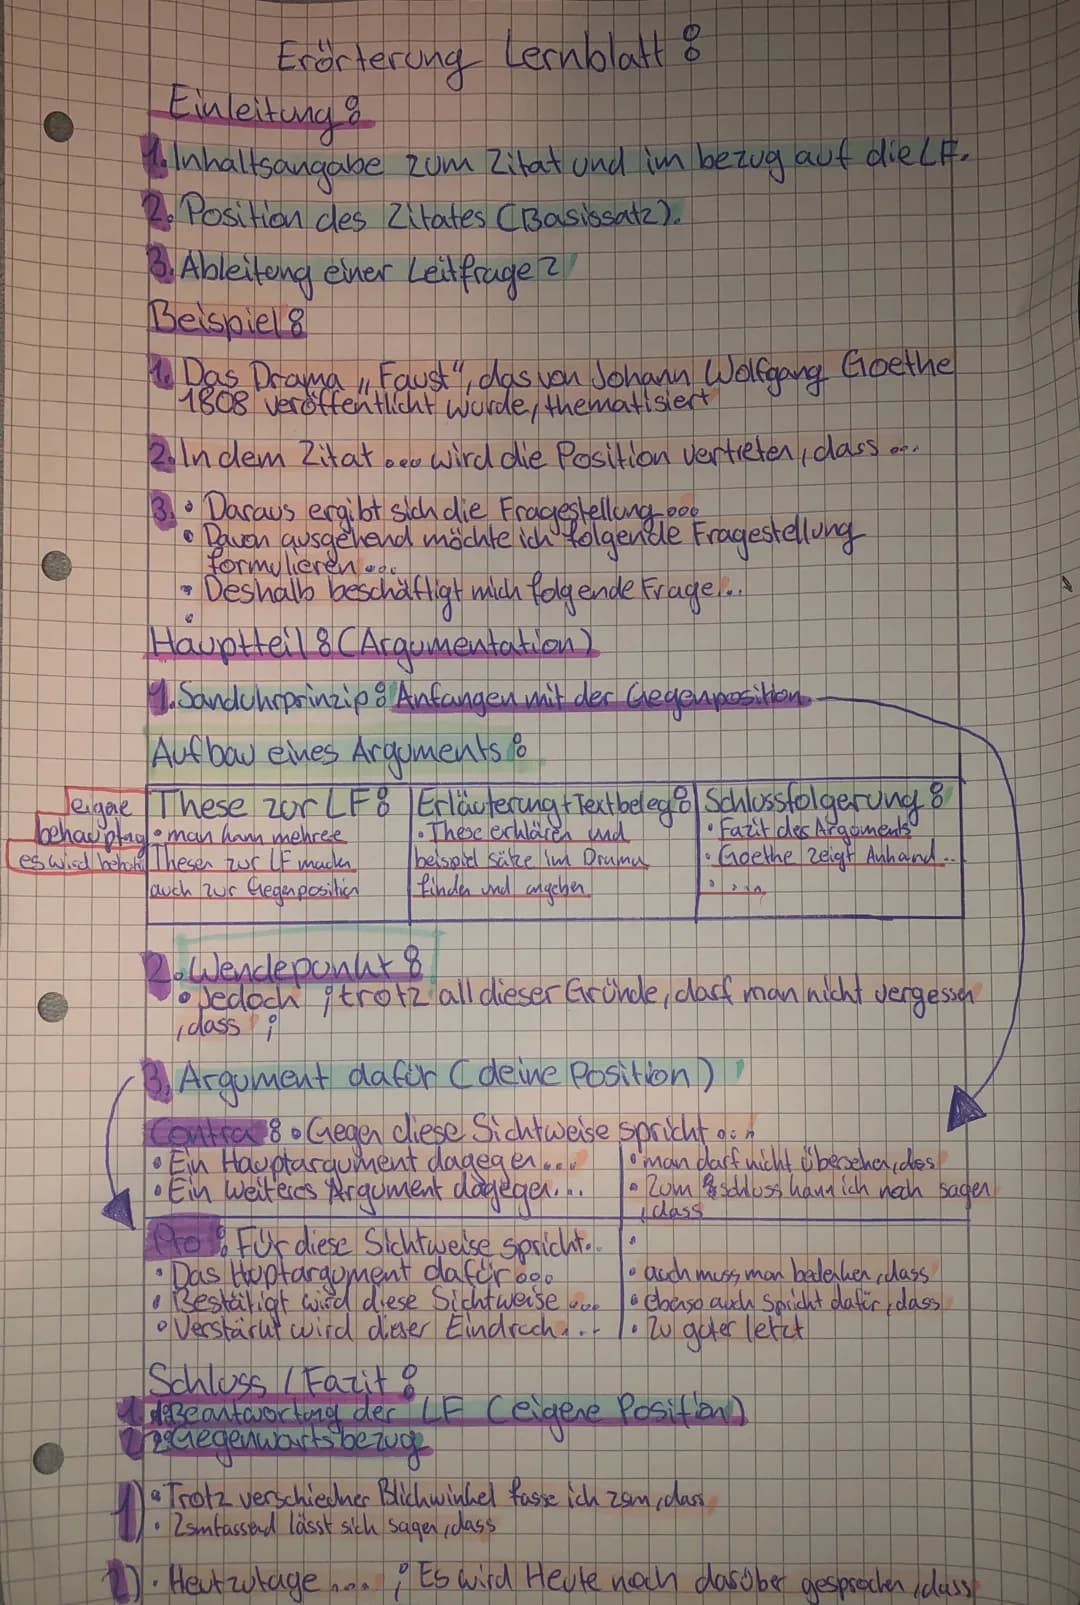 Erörterung Lernblatt :
Einleitung :
1. Inhaltsangabe zum Zitat und im bezug auf die LF.
2. Position des Zitates (Basissatz).
3. Ableitung einer Leitfrage ?
Beispiel :
1. Das Drama „Faust“, das von Johann Wolfgang Goethe
1808 veröffentlicht wurde, thematisiert
2. In dem Zitat ... wird die Position vertreten, dass ...
3. • Daraus ergibt sich die Fragestellung ...
• Davon ausgehend möchte ich folgende Fragestellung
formulieren ...
• Deshalb beschäftigt mich folgende Frage ...
Hauptteil : (Argumentation)
1. Sanduhrprinzip : Anfangen mit der Gegenposition
Aufbau eines Arguments :
eigene
behauptng
es wird behau
These zur LF :
• man kann mehree
Thesen zur LF machen
auch zur Gegenposition
Erläuterung + Textbeleg :
• These erklären und
beispiel sätze im Drama
finden und angeben
Schlussfolgerung :
• Fazit des Arguments
• Goethe zeigt Anhand ...
2. Wendepunkt :
• Jedoch ; trotz all dieser Gründe, darf man nicht vergessen
, dass ;
3. Argument dafür (deine Position)
Contra : • Gegen diese Sichtweise spricht ...
• Ein Hauptargument dagegen ...
• Ein Weiteres Argument dagegen ...
• man darf nicht übersehen, das
• Zum schluss kann ich noch sagen
, dass
Pro : Für diese Sichtweise spricht ..
• Das Huptargument dafür ...
• Bestätigt wird diese Sichtweise ...
• Verstärkt wird dieser Eindruck ...
• auch muss man bedenken, dass
• Ebenso auch Spricht dafür, dass
• Zu guter letzt
Schluss / Fazit :
1. Beantwortung der LF (eigene Position)
2. Gegenwartsbezug
1) • Trotz verschiedner Blickwinkel fasse ich zsm, dass
• Zsmfassend lässt sich sagen, dass
2) • Heutzutage ... ; Es wird Heute noch darüber gesprochen, dass